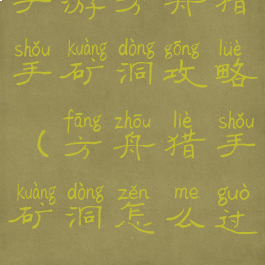 手游方舟猎
shǒu kuàng dòng gōng lüè
手矿洞攻略
fāng zhōu liè shǒu
（方舟猎手
kuàng dòng zěn me guò
矿洞怎么过